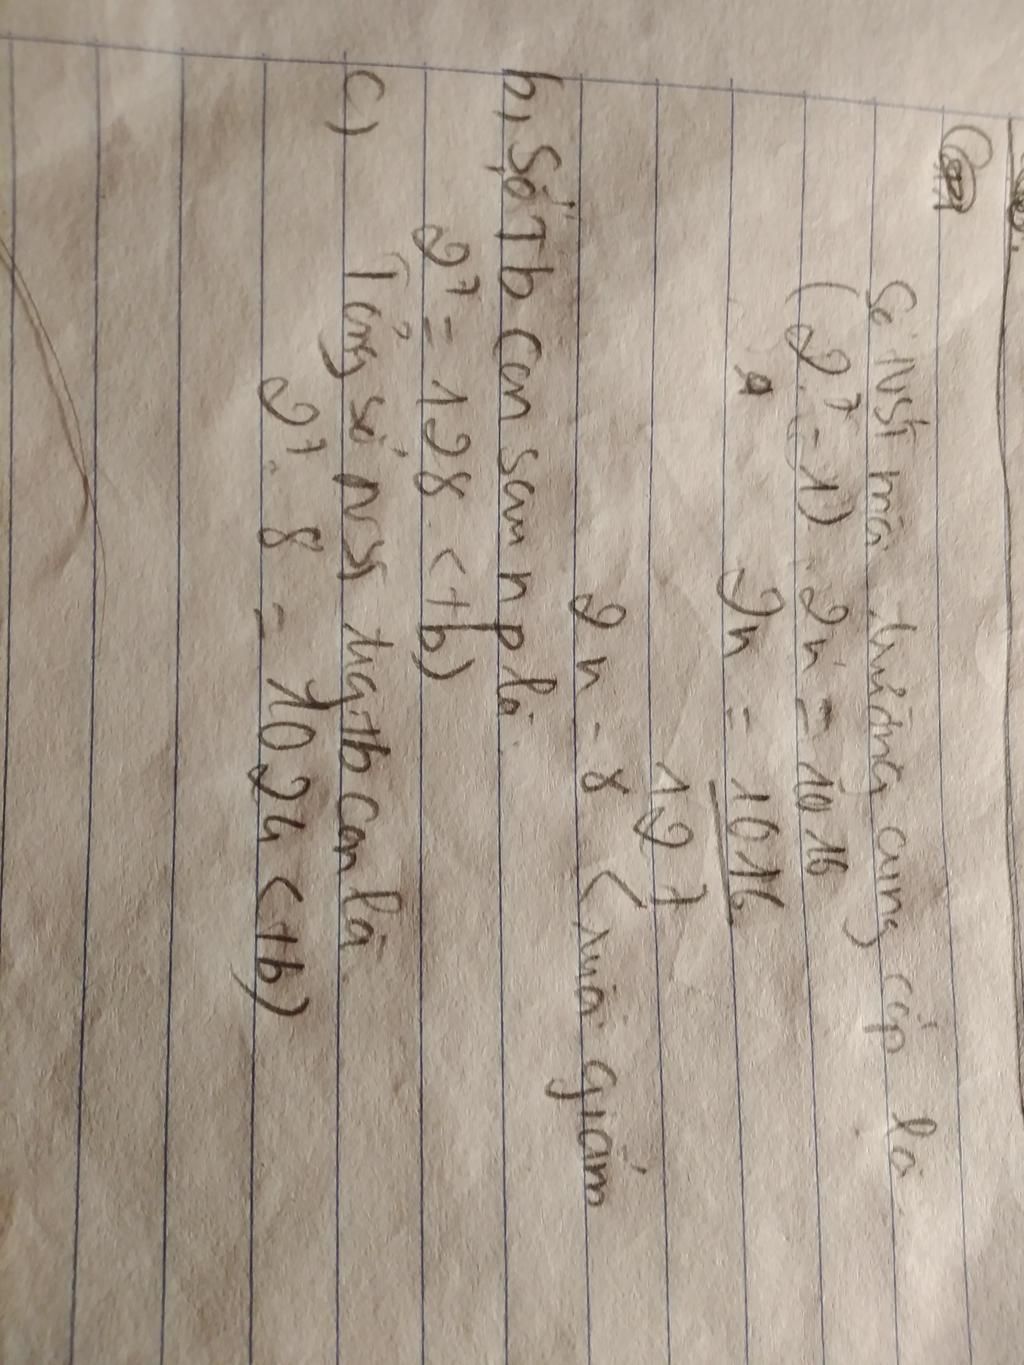 Số NST môi trường cung cấp là
(2⁷ - 1) . 2n = 1016
2n = 1016
127
2n = 8 (ruồi giấm
b, Số Tb con sau np là
2⁷ = 128 (tb)
c) Tổng số NST trg tb con là
2⁷ . 8 = 1024 (tb)